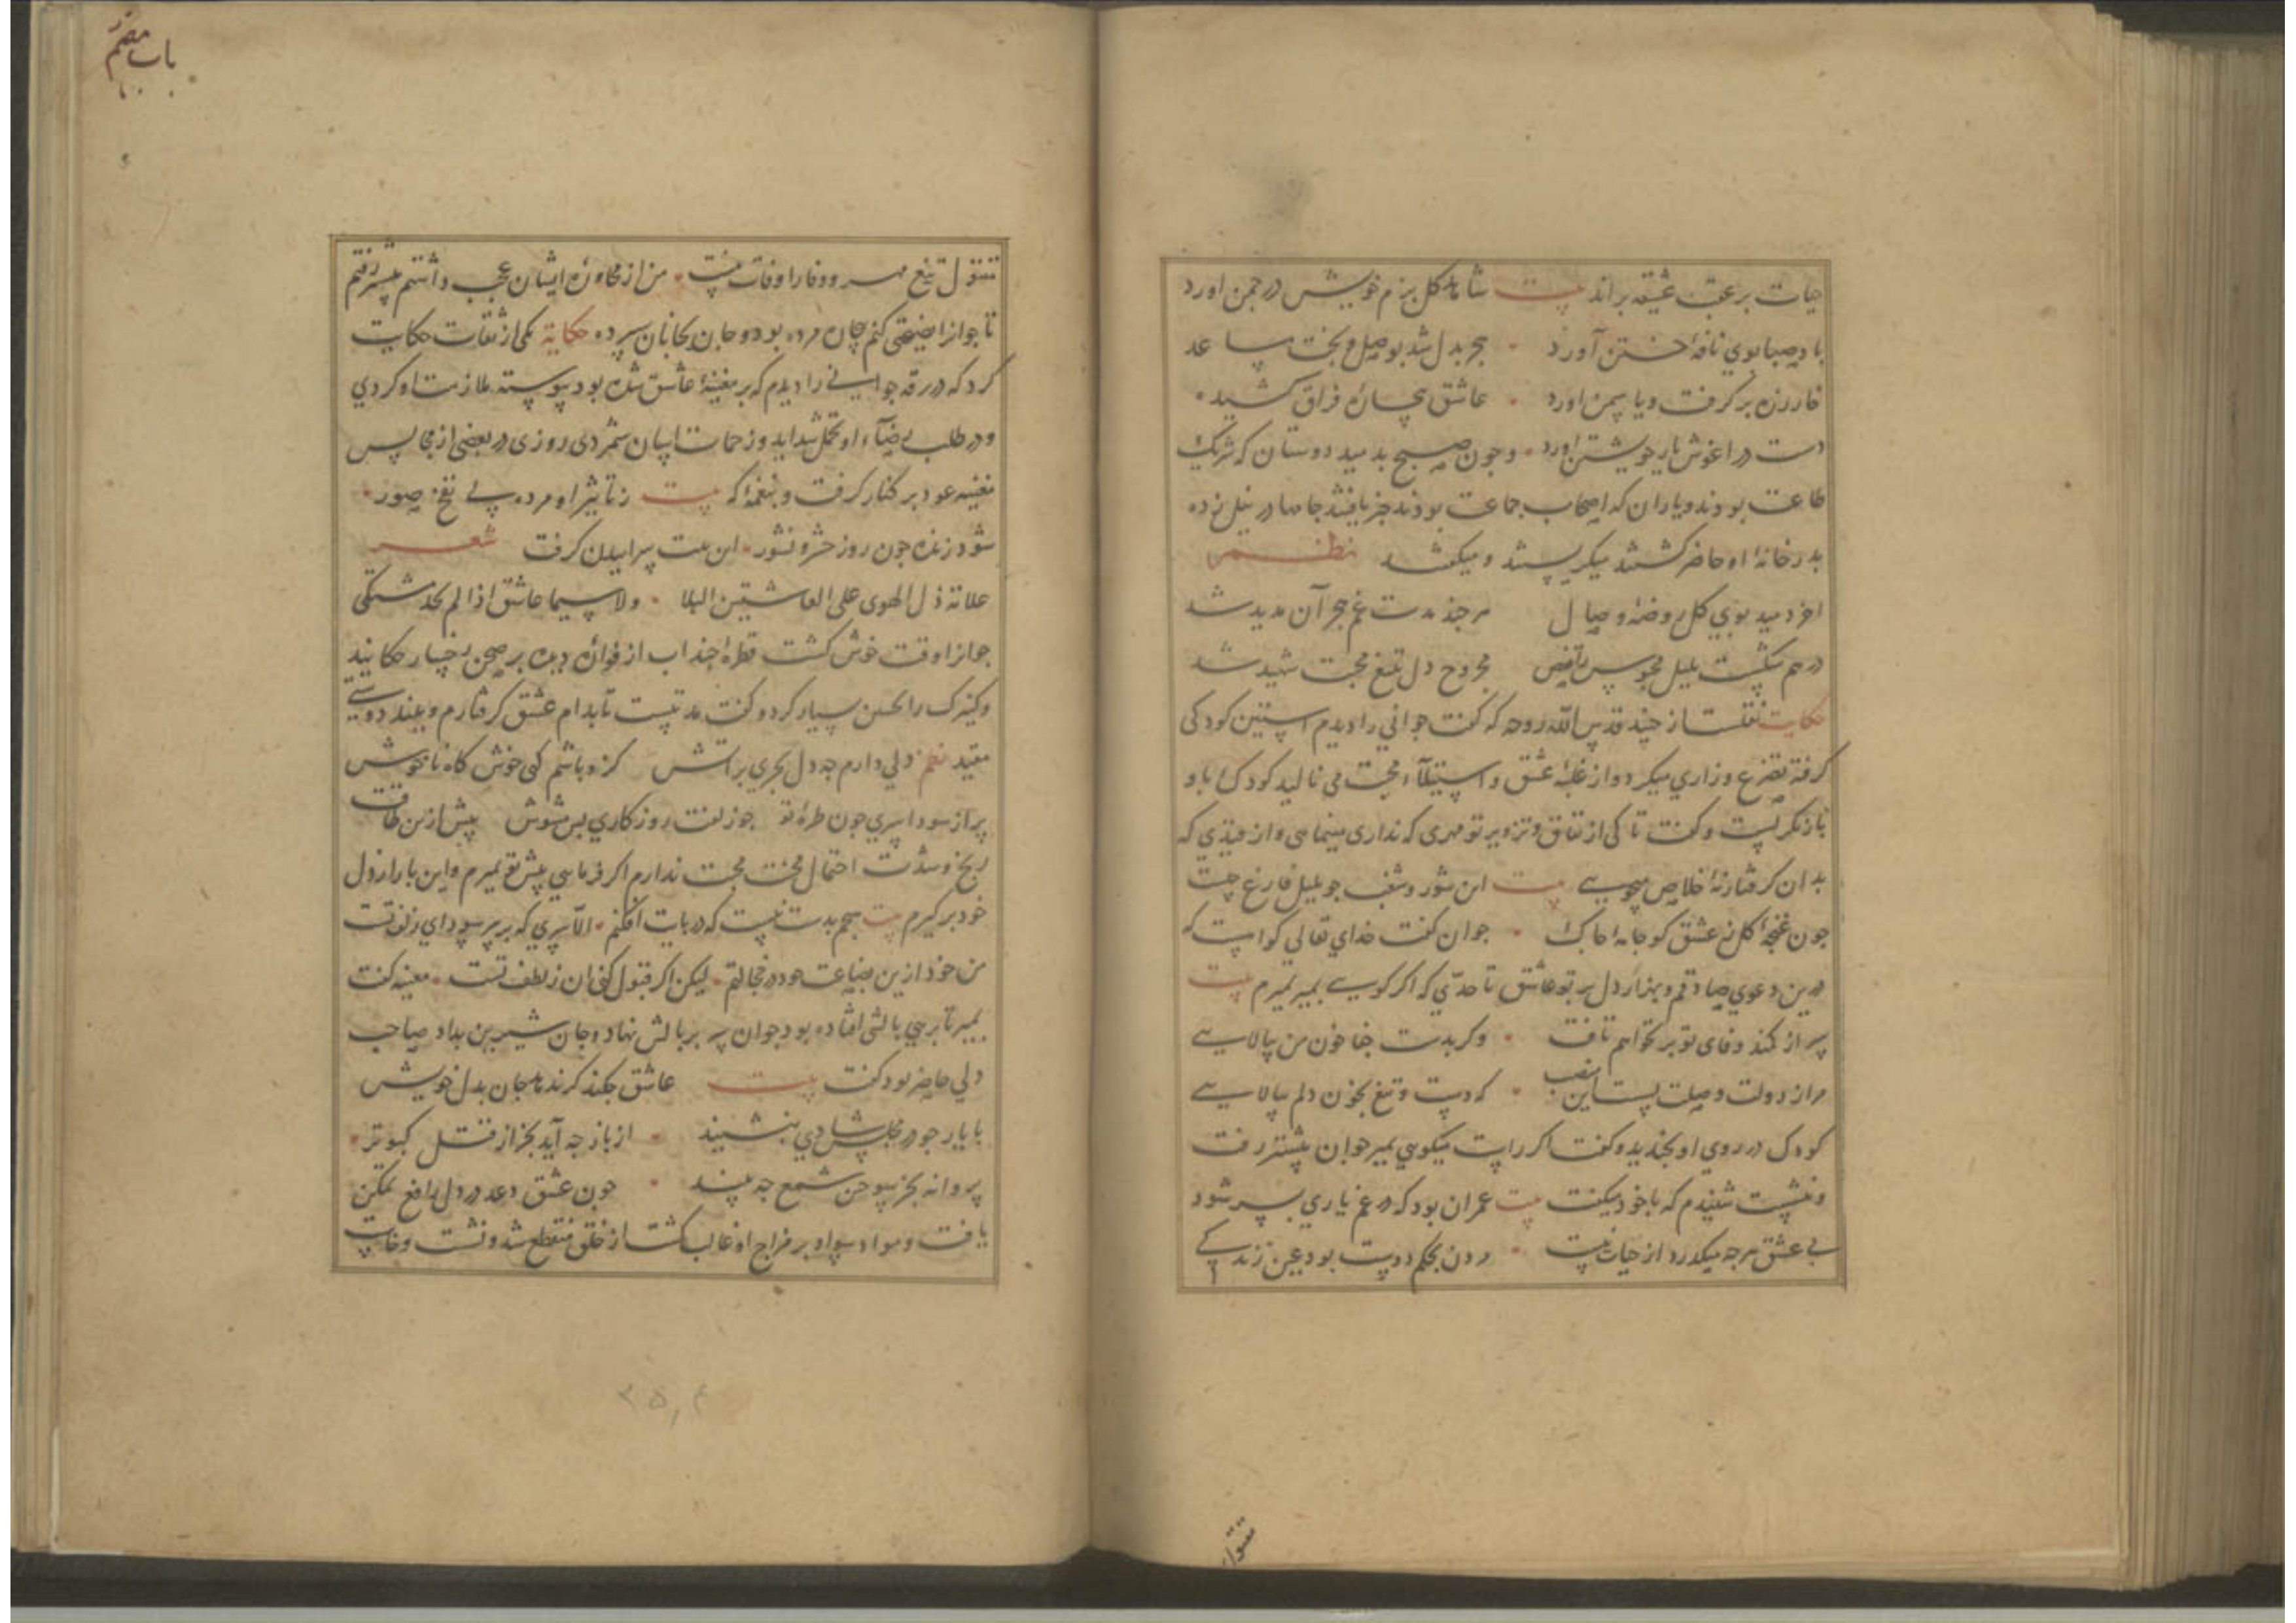 حیات بر عقب عشقه براند بیت شاهد کل بزم خویش در چمن اورد
باد صبا بوی نافهٔ ختن آورد هجر بدل شد بوصل و بخت مساعد
خار زره بر کرفت و یاسمن اورد عاشق بیچاره فراق کشیده
دست در اغوش یار خویشتن اورد وجون صبح بدمید دوستان که شریک
طاعت بودند ویاران که اصحاب جماعت بودند خبر یافتند جامها در نیل زده
بدر خانهٔ او حاضر کشتند میکریستند و میکفتند نظم
اخر دمید بوی کل روضهٔ وصال هرچند مدت غم هجر آن مدید شد
درهم شکست بلبل محبوس تا قفص مجروح دل بتیغ محبت شهید شد
حکایت نقلست از جنید قدس الله روحه که کفت جوانی را دیدم استین کودکی
کرفته تضرع وزاری میکرد واز غلبهٔ عشق و استیلآء محبت می نالید کودک باو
باز نکریست وکفت تا کی از نفاق وتزویر تو مهری که نداری مینمایی واز قیدی که
بدان کرفتار نهٔ خلاص میجویی بیت این شور وشغب جو بلبل فارغ چیست
جون غنجهٔ کل زعشق کو جامهٔ چاک جوان کفت خدای تعالی کواست که
درین دعوی صادقم وبهزار دل بر تو عاشق تا حدی که اکر کویی بمیر بمیرم بیت
سر از کمند وفای تو بر نخواهم تافت وکر بدست جفا خون من بپالایی
مرا ز دولت وصلت بس است این منصب که دست وتیغ بخون دلم بیالایی
کودک در روی او بخندید وکفت اکر راست میکویی بمیر جوان پیشتر رفت
ونشست شنیدم که با خود میکفت بیت عمر آن بود که در غم یاری بسر شود
بی عشق هرجه میکذرد از حیات نیست مردن بحکم دوست بود عین زندکی
مقتول
باب هفتم
مقتول تیغ مهر و وفا را وفات نیست من از محاورهٔ ایشان عجب داشتم پیشتر رفتم
تا جوانرا نصیحتی کنم جان مرده بود و جان بجانان سپرده حکایة یکی از ثقات حکایت
کرد که در رقه جوانی را دیدم که بر مغنیهٔ عاشق شده بود پیوسته ملازمت او کردی
ودر طلب رضآء او تحمل شداید وزحمات اسان شمردی روزی در بعضی از مجالس
مغنیه عود بر کنار کرفت وبنغمهٔ که بیت ز تاثیر او مرده بی نفخ صور
شود زنده جون روز حشر و نشور این بیت سراییدن کرفت شعر
علامة ذل الهوی علی العاشقین البکا ولا سیما عاشق اذا لم یجد مشتکی
جوانرا وقت خوش کشت قطرهٔ چند اب از فوارهٔ دیده بر صحن رخسار چکانید
وکنیزک را تحسین بسیار کرد وکفت مدتیست تا بدام عشق کرفتارم وببند دوستی
مقید نظم دلی دارم جه دل بحری بر آتش کزو باشم کهی خوش کاه ناخوش
پر از سودا سری جون طرهٔ تو جو زلفت روزکاری بس مشوش بیش ازین طاقت
رنج وشدت احتمال محنت محبت ندارم اکر فرمایی پیش تو بمیرم واین بار از دل
خود برکیرم بیت هیجم بدست نیست که در پایت افکنم الّا سری که بر سر سودای زلف تست
من خود ازین بضاعت خود در خجالتم لیکن اکر قبول کنی آن ز لطف تست مغنیه کفت
بمیر تا برهی بالشی افتاده بود جوان سر بر بالش نهاد وجان شیرین بداد صاحب
دلی حاضر بود کفت بیت عاشق جکند کر ندهد جان بدل خویش
با یار جو در مجلس شادی بنشیند از باز جه آید بجز از قتل کبوتر
پروانه بجز سوختن شمع جه بیند جون عشق دعد در دل رافع تمکن
یافت ومواد سودا بر مزاج او غالب کشت از خلق منقطع شد ونشست وخاست